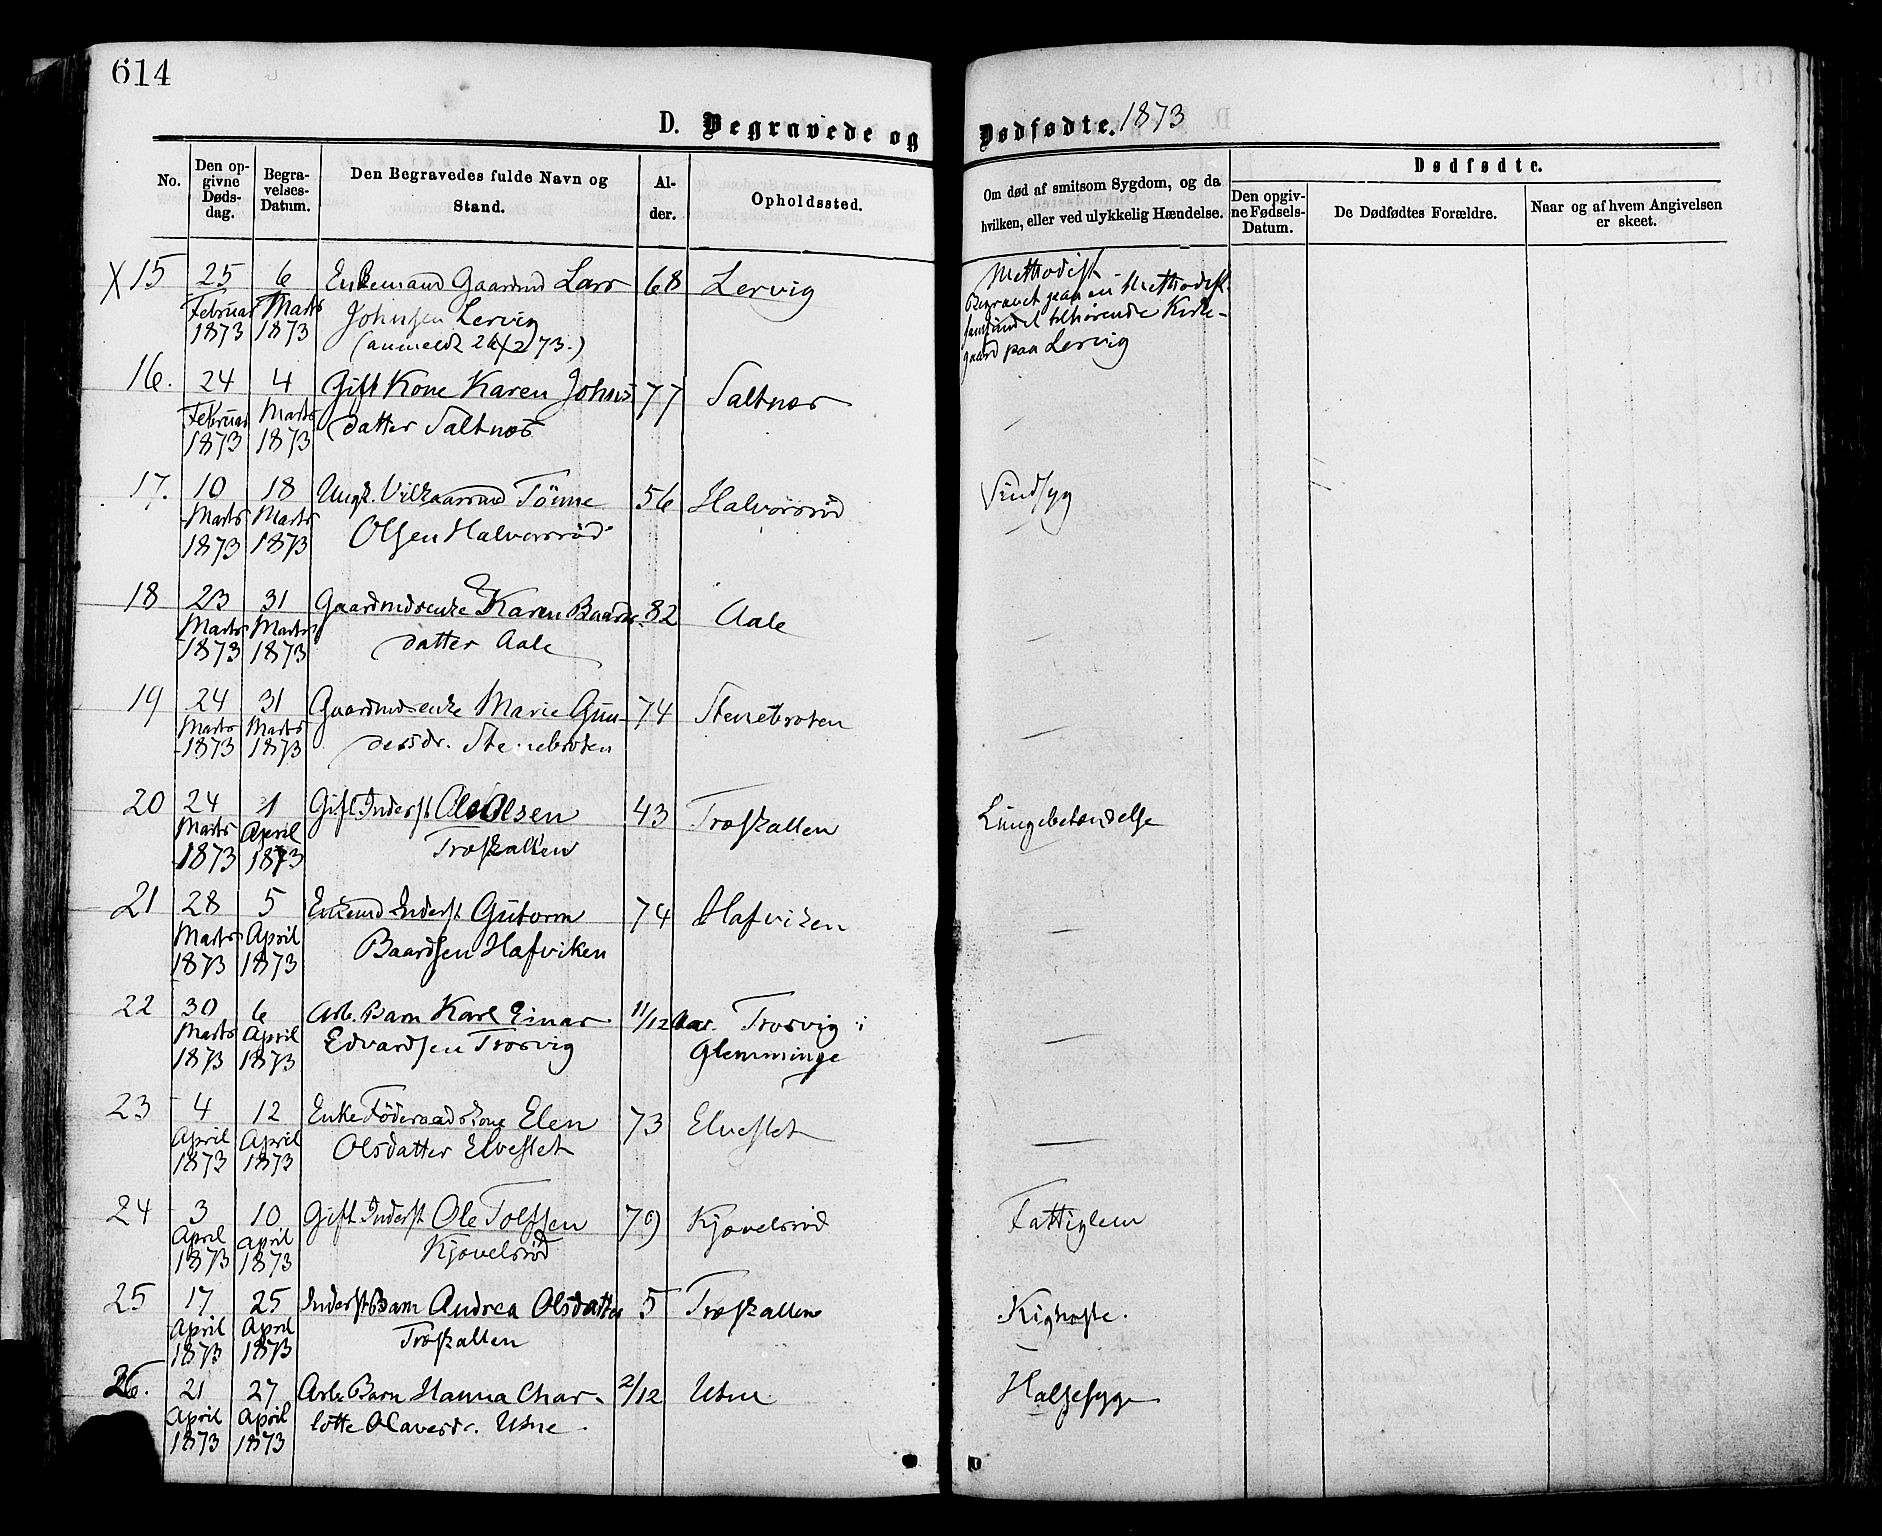 614
D. Begravede og Dødfødte. 1873
No.
Den opgivne Dødsdag.
Begravelses-Datum.
Den Begravedes fulde Navn og Stand.
Alder.
Opholdssted.
Om død af smitsom Sygdom, og da hvilken, eller ved ulykkelig Hændelse.
Dødfødte.
Den opgivne Fødsels-Datum.
De Dødfødtes Forældre.
Naar og af hvem Angivelsen er skeet.
X 15 25 Februar 1873 6 Marts 1873 Enkemand Gaardmd Lars 68 Lervig Methodist
Johnsen Lervig Begravet paa en Methodist
(anmeldt 26/2 73.) samfundet tilhørende Kirke-
gaard paa Lervig
16. 24 Februar 1873 4 Marts 1873 Gift Kone Karen Johns 77 Saltnæs –
datter Saltnæs
17. 10 Marts 1873 18 Marts 1873 Ungk. Vilkaarsmd Tönne 56 Halvorsrød Sindsyg
Olsen Halvorsrød
18 23 Marts 1873 31 Marts 1873 Gaardmdsenke Karen Baards 82 Aale –
datter Aale
19 24 Marts 1873 31 Marts 1873 Gaardmdsenke Marie Gun- 74 Stenebroten –
dersdr. Stenebroten
20 24 Marts 1873 1 April 1873 Gift Inderst Ole Olsen 43 Træskallen Lungebetændelse
Træskallen
21 28 Marts 1873 5 April 1873 Enkemd Inderst Gutorm 74 Hafviken –
Baardsen Hafviken
22 30 Marts 1873 6 April 1873 Arb. Barn Karl Einar 11/12 Aar. Trosvig i –
Edvardsen Trosvig Glemminge
23 4 April 1873 12 April 1873 Enke Föderaadskone Elen 73 Elveslet –
Olsdatter Elveslet
24 3 April 1873 10 April 1873 Gift Inderst Ole Tolfsen Kjøvelsrød Fattiglem
Kjøvelsrød
25 17 April 1873 25 April 1873 Inderst Barn Andrea Olsdatter 5 Træskallen Kighoste.
Træskallen
26. 21 April 1873 27 April 1873 Arb. Barn Hanna Char- 2/12 Utne Halssyge
lotte Olavesdr. Utne